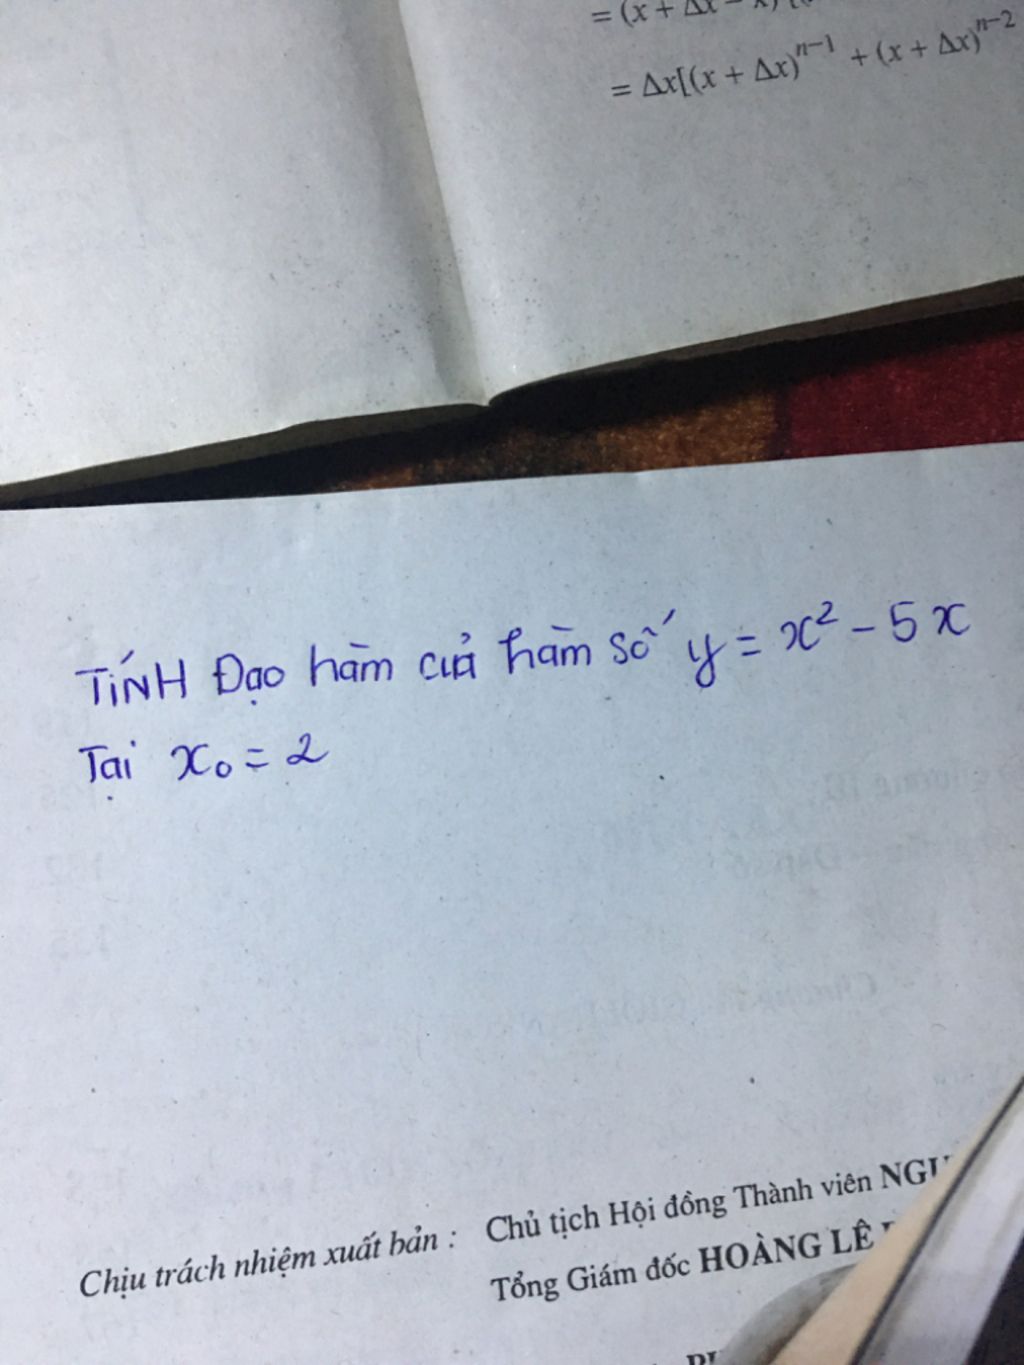 = (x + Δx − x)
= Δx[(x + Δx)ⁿ⁻¹ + (x + Δx)ⁿ⁻²
TíNH Đạo hàm của hàm số y = x² − 5x
Tại x₀ = 2
Chịu trách nhiệm xuất bản : Chủ tịch Hội đồng Thành viên
Tổng Giám đốc HOÀNG LÊ